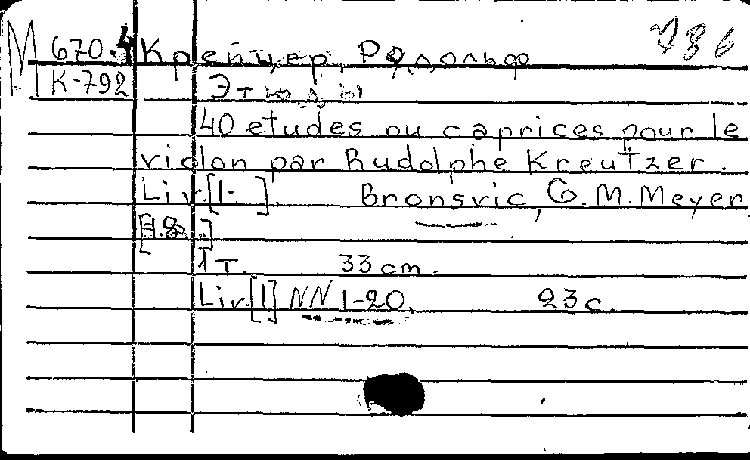 786
М 670.4 Крейцер, Родольф
К-792 Этюды
40 etudes ou caprices pour le
violon par Rudolphe Kreutzer.
Liv.[1- ] Bronsvic, G. M. Meyer,
1 т. 33 cm.
Liv.[1] NN 1-20. 23 c.